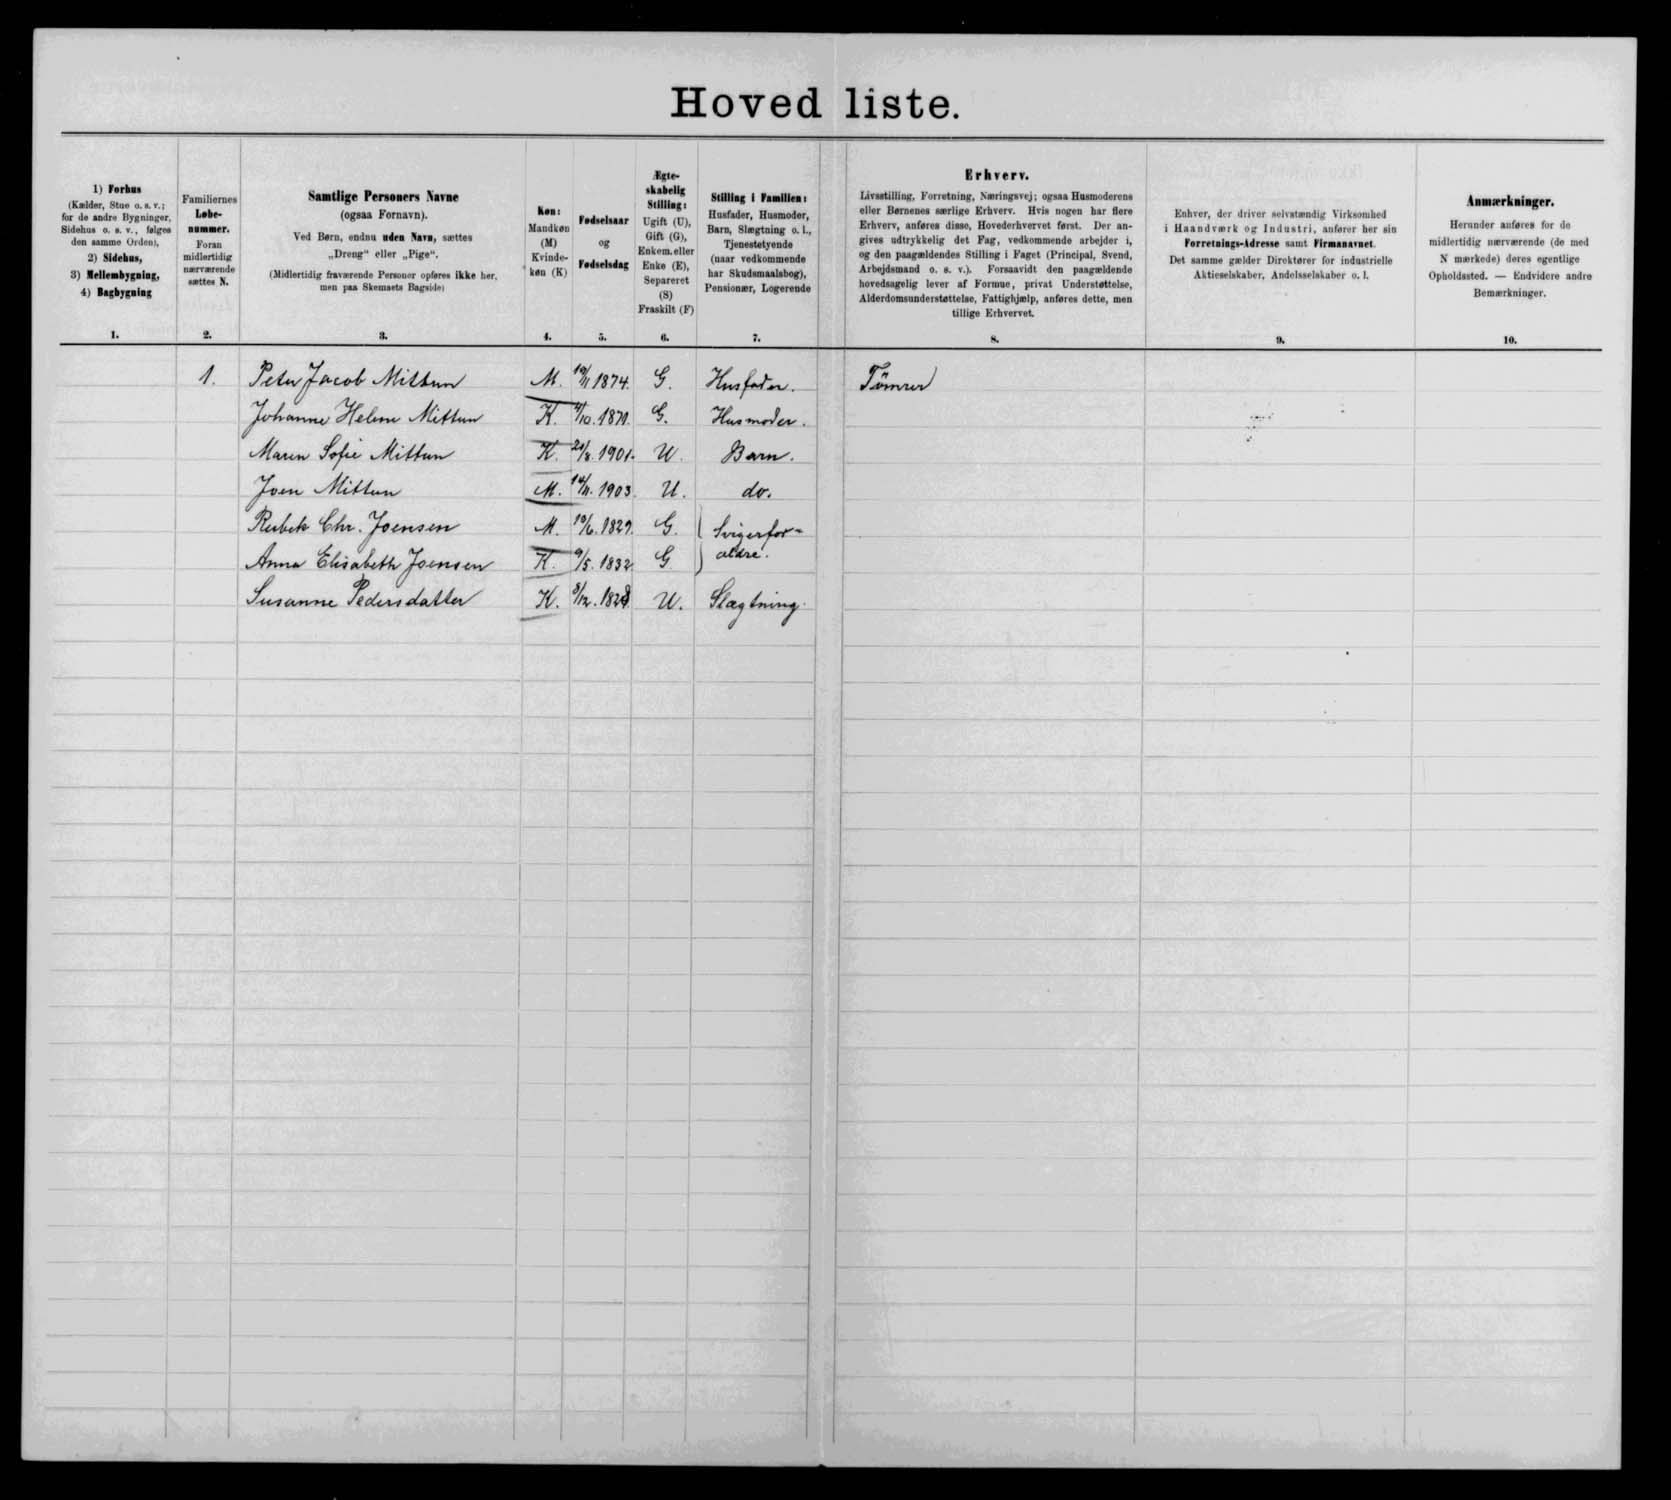 Hovedliste.
1) Forhus
(Kælder, Stue o. s. v.;
for de andre Bygninger,
Sidehus o. s. v., følges
den samme Orden),
2) Sidehus,
3) Mellembygning,
4) Bagbygning
1.
Familiernes
Løbe-
nummer.
Foran
midlertidig
nærværende
sættes N.
2.
Samtlige Personers Navne
(ogsaa Fornavn).
Ved Børn, endnu uden Navn, sættes
„Dreng“ eller „Pige“.
(Midlertidig fraværende Personer opføres ikke her,
men paa Skemaets Bagside)
3.
Køn:
Mandkøn
(M)
Kvinde-
køn (K)
4.
Fødselsaar
og
Fødselsdag
5.
Ægte-
skabelig
Stilling:
Ugift (U),
Gift (G),
Enkem. eller
Enke (E),
Separeret
(S)
Fraskilt (F)
6.
Stilling i Familien:
Husfader, Husmoder,
Barn, Slægtning o. l.,
Tjenestetyende
(naar vedkommende
har Skudsmaalsbog),
Pensionær, Logerende
7.
Erhverv.
Livsstilling, Forretning, Næringsvej; ogsaa Husmoderens
eller Børnenes særlige Erhverv. Hvis nogen har flere
Erhverv, anføres disse, Hovederhvervet først. Der an-
gives udtrykkelig det Fag, vedkommende arbejder i,
og den paagældendes Stilling i Faget (Principal, Svend,
Arbejdsmand o. s. v.). Forsaavidt den paagældende
hovedsagelig lever af Formue, privat Understøttelse,
Alderdomsunderstøttelse, Fattighjælp, anføres dette, men
tillige Erhvervet.
8.
Enhver, der driver selvstændig Virksomhed
i Haandværk og Industri, anfører her sin
Forretnings-Adresse samt Firmanavnet.
Det samme gælder Direktører for industrielle
Aktieselskaber, Andelsselskaber o. l.
9.
Anmærkninger.
Herunder anføres for de
midlertidig nærværende (de med
N mærkede) deres egentlige
Opholdssted. — Endvidere andre
Bemærkninger.
10.
1. Peter Jacob Mittun M. 10/11 1874. G. Husfader. Tømrer
Johanne Helene Mittun K. /10. 1871. G. Husmoder.
Maren Sofie Mittun K. 1901. U. Barn.
Joen Mittun M. 14/11. 1903. U. do.
Chr. Joensen M. 10/6. 1829. G. Svigerfor=
Anna Elisabeth Joensen K. 9/5. 1832. G. ældre.
Susanne Pedersdatter K. 8/12. U. Slægtning.